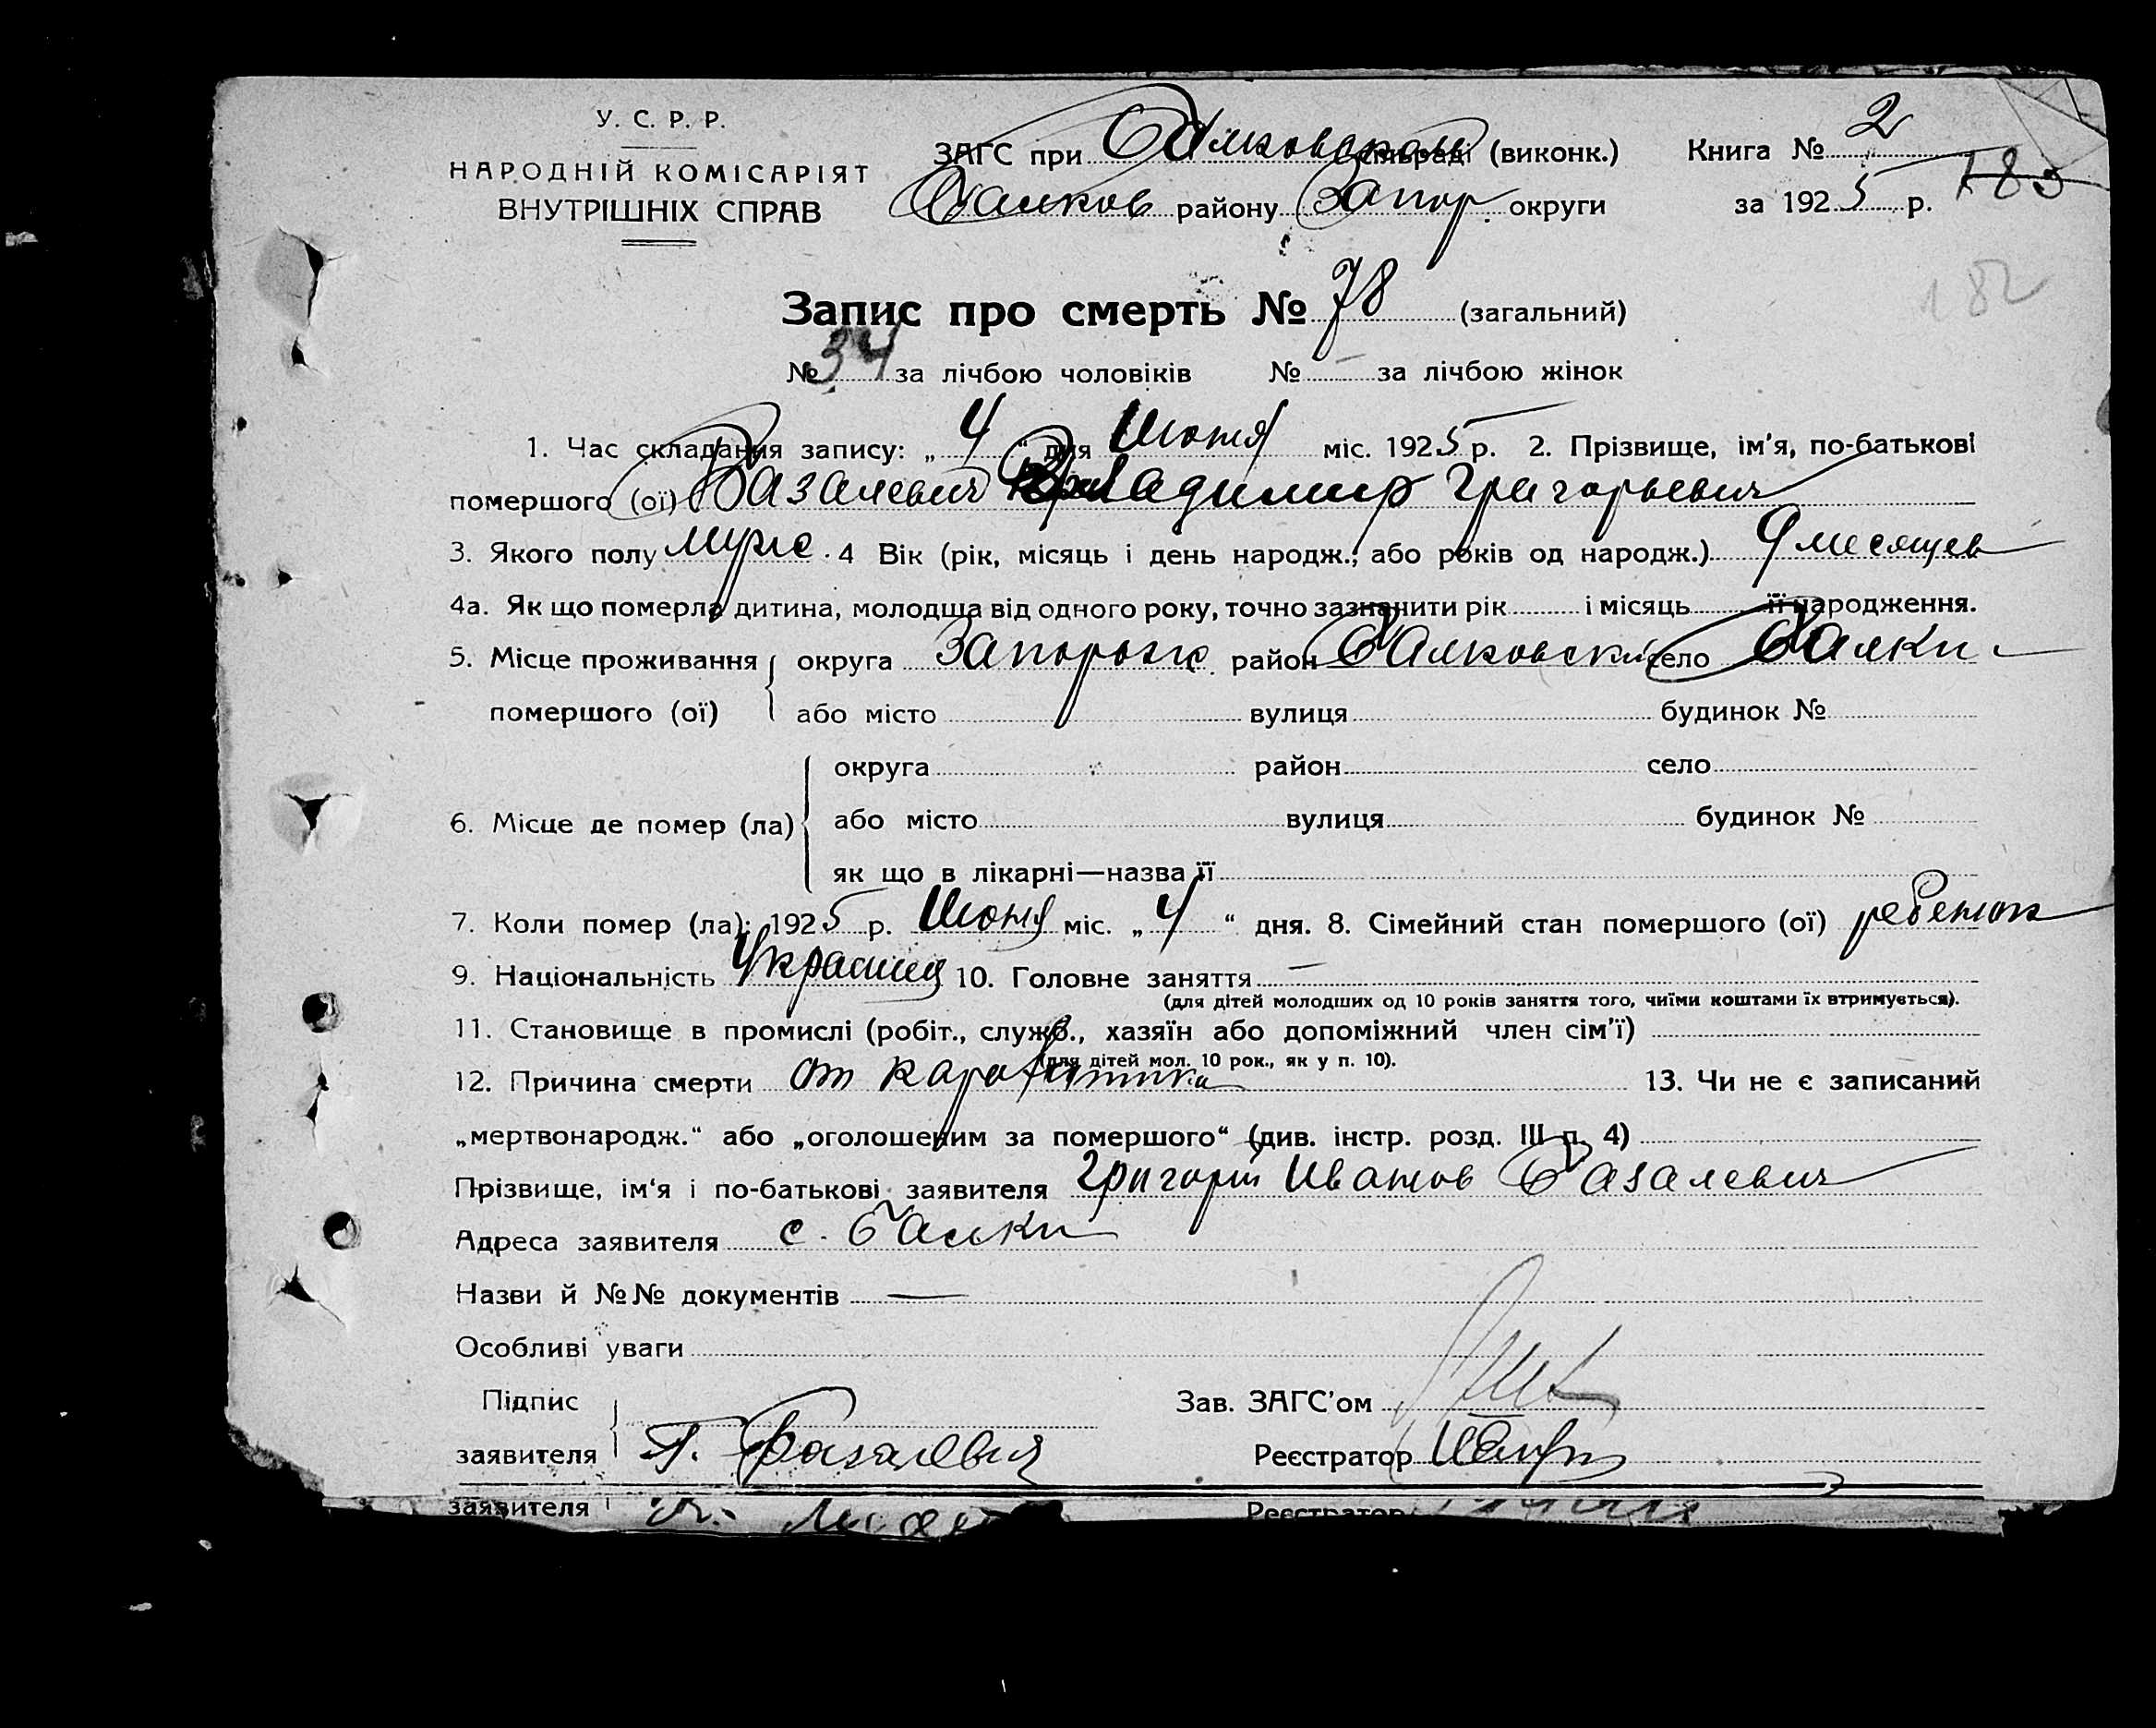 У. С. Р. Р.
НАРОДНІЙ КОМІСАРІЯТ
ВНУТРІШНІХ СПРАВ
ЗАГС при Балковском сільраді (виконк.)
Балков району Запор. округи
Книга № 2
за 1925 р.
183
182
Запис про смерть № 78 (загальний)
№ 34 за лічбою чоловіків № — за лічбою жінок
1. Час складання запису: „ 4 “ дня Июня міс. 1925 р. 2. Прізвище, ім'я, по-батькові
помершого (ої) Базалевич Владимир Григорьевич
3. Якого полу муж. 4 Вік (рік, місяць і день народж.; або років од народж.) 9 месяцев
4а. Як що померла дитина, молодща від одного року, точно зазначити рік і місяць її народження.
5. Місце проживання округа Запорож район Балковски село Балки
помершого (ої) або місто вулиця будинок №
округа район село
6. Місце де помер (ла) або місто вулиця будинок №
як що в лікарні—назва її
7. Коли помер (ла): 1925 р. Июня міс. „ 4 “ дня. 8. Сімейний стан помершого (ої) ребенок
9. Національність Украинец 10. Головне заняття —
(для дітей молодших од 10 років заняття того, чиїми коштами їх втримується).
11. Становище в промислі (робіт., служб., хазяїн або допоміжний член сім'ї)
(для дітей мол. 10 рок., як у п. 10).
12. Причина смерти от 13. Чи не є записаний
„мертвонародж.“ або „оголошеним за помершого“ (див. інстр. розд. III п. 4)
Прізвище, ім'я і по-батькові заявителя Григорий Иванов Базалевич
Адреса заявителя с. Балки
Назви й №№ документів —
Особливі уваги
Підпис
заявителя Г. Базалевич
Зав. ЗАГС'ом
Реєстратор
заявителя
Реєстратор